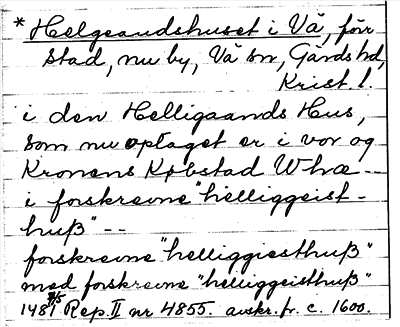 * Helgeandshuset i Vä, förr
stad, nu by, Vä sn, Gärds hd,
Krist. l.
i den Helligaands Hus,
som nu optaget er i vor og
Kronens Købstad Whæ --
i forskrevne "helliggeist-
huß" --
forskrevne "helliggiesthuß"
med forskrevne "helliggeisthuß"
1481 8/5 Rep. II nr 4855. avskr. fr. c. 1600.